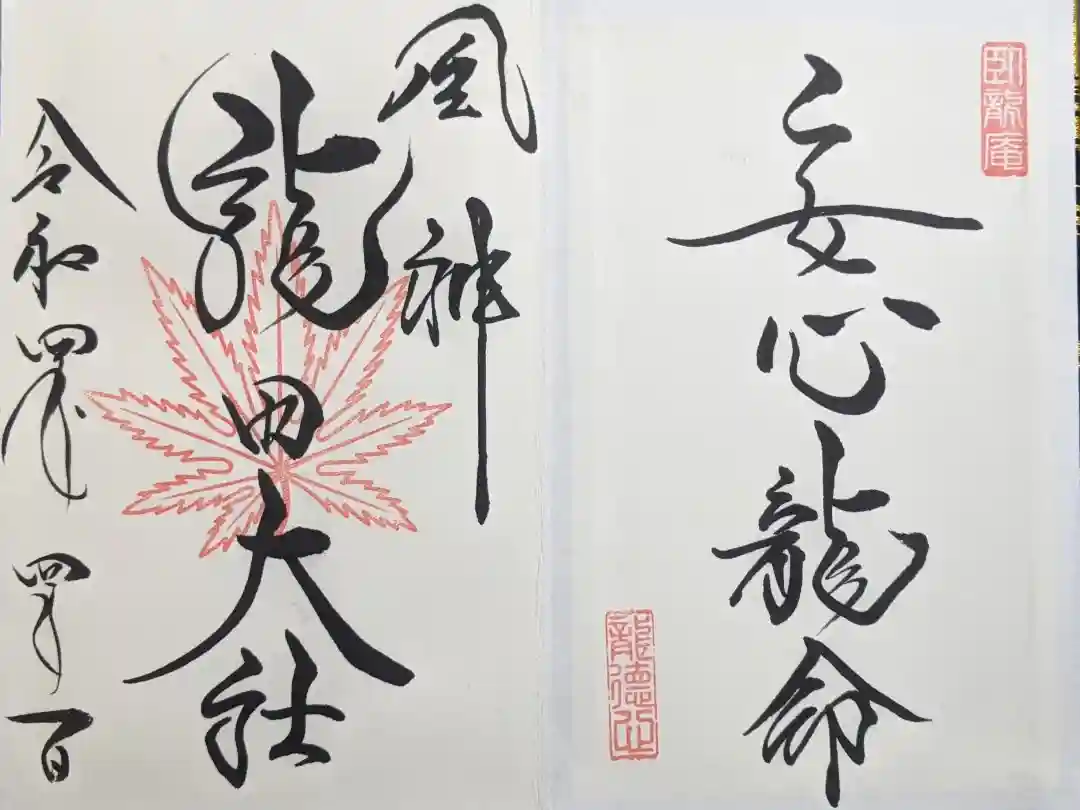 臥龍庵
安心龍命
龍徳
風神
龍田大社
令和四年四月一日